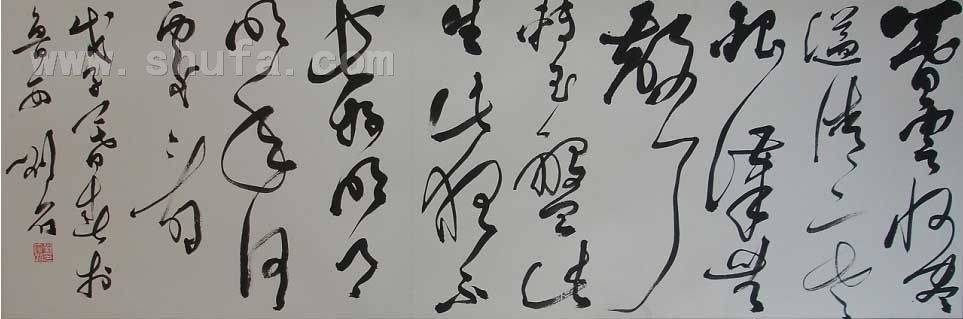 暮雲收盡
溢清寒
銀漢無
聲
轉玉盤此
生此夜不
長好明月
明年何
處看
戊子春於
魯西
www.shufa.com